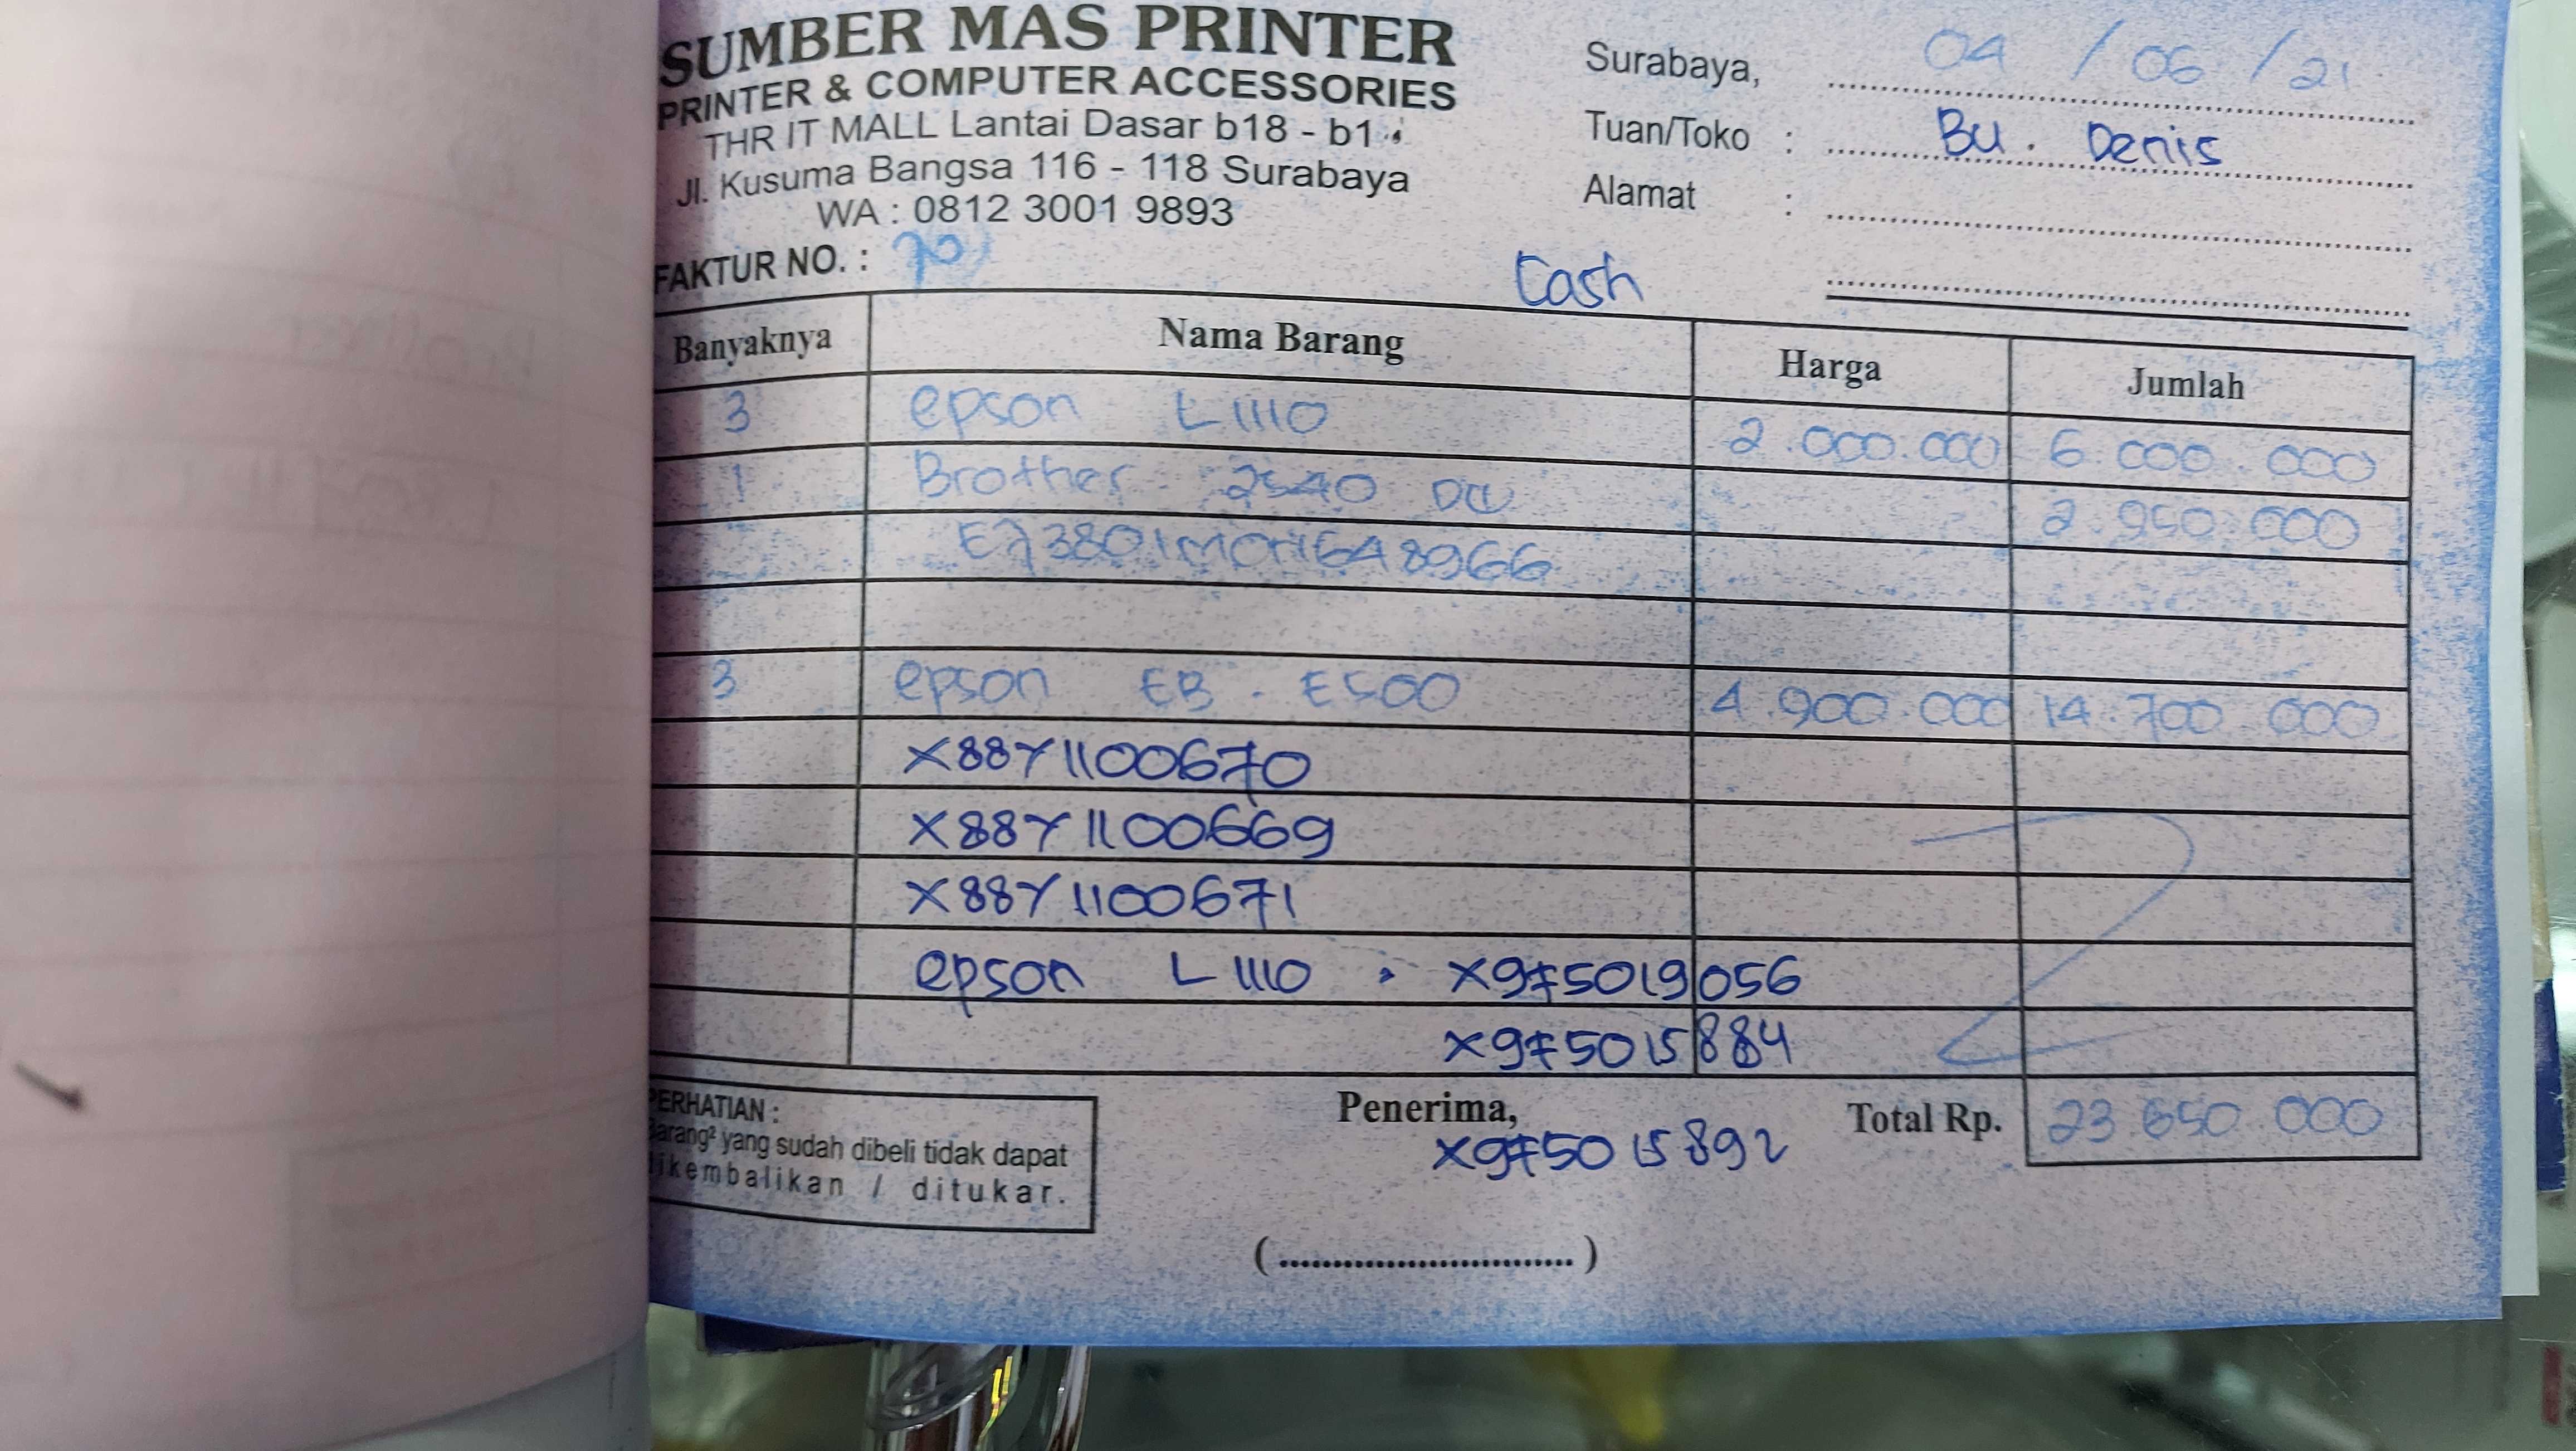 SUMBER MAS PRINTER
PRINTER & COMPUTER ACCESSORIES
THR IT MALL Lantai Dasar b18 - b1
Jl. Kusuma Bangsa 116 - 118 Surabaya
WA : 0812 3001 9893
FAKTUR NO. : 70
Surabaya, 04 / 06 / 21
Tuan/Toko : Bu. Denis
Alamat :
Cash
Banyaknya Nama Barang Harga Jumlah
3 epson L1110 2.000.000 6.000.000
1 Brother 2540 2.950.000
E73801M0H648966
3 epson EB - E500 4.900.000 14.700.000
X88Y1100670
X88Y1100669
X88Y1100671
epson L1110 X975019056
X975015884
PERHATIAN :
Barang² yang sudah dibeli tidak dapat
dikembalikan / ditukar.
Penerima,
X975015892
Total Rp. 23.650.000
(..............................)